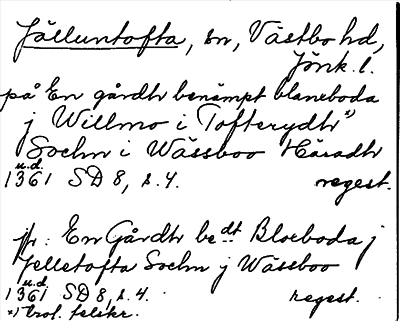 Jälluntofta, sn, Västbo hd,
Jönk. l.
på En gårdh benämpt blaneboda
j Willmo i Tofterydh x)
Sochn i Wässboo Häradh
u.d.
1361 SD 8, s. 4. regest.
jfr: En Gårdh be:dt Bloeboda j
Jelletofta Sochn j Wässboo
u.d.
1361 SD 8, s. 4. regest.
x) trol. felskr.